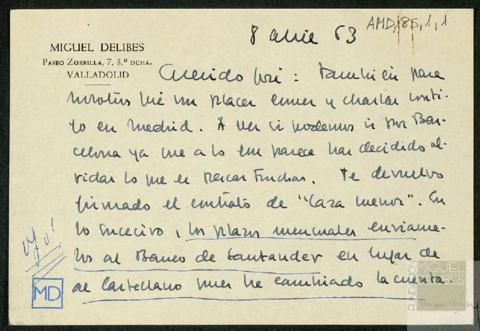 8 abril 63
AMD,85,1,1
MIGUEL DELIBES
PASEO ZORRILLA, 7, 3.º DCHA.
VALLADOLID
Querido José: También para
nosotros fué un placer comer y charlar conti-
go en Madrid. A ver si podemos ir por Bar-
celona ya que a lo que parece has decidido ol-
vidar lo que es pescar truchas. Te devuelvo
firmado el contrato de "Caza menor". En
lo sucesivo, los plazos mensuales envíame-
lo al Banco de Santander en lugar de
al Castellano pues he cambiado la cuenta.
ojo!
MD
FUNDACIÓN
MIGUEL
DELIBES